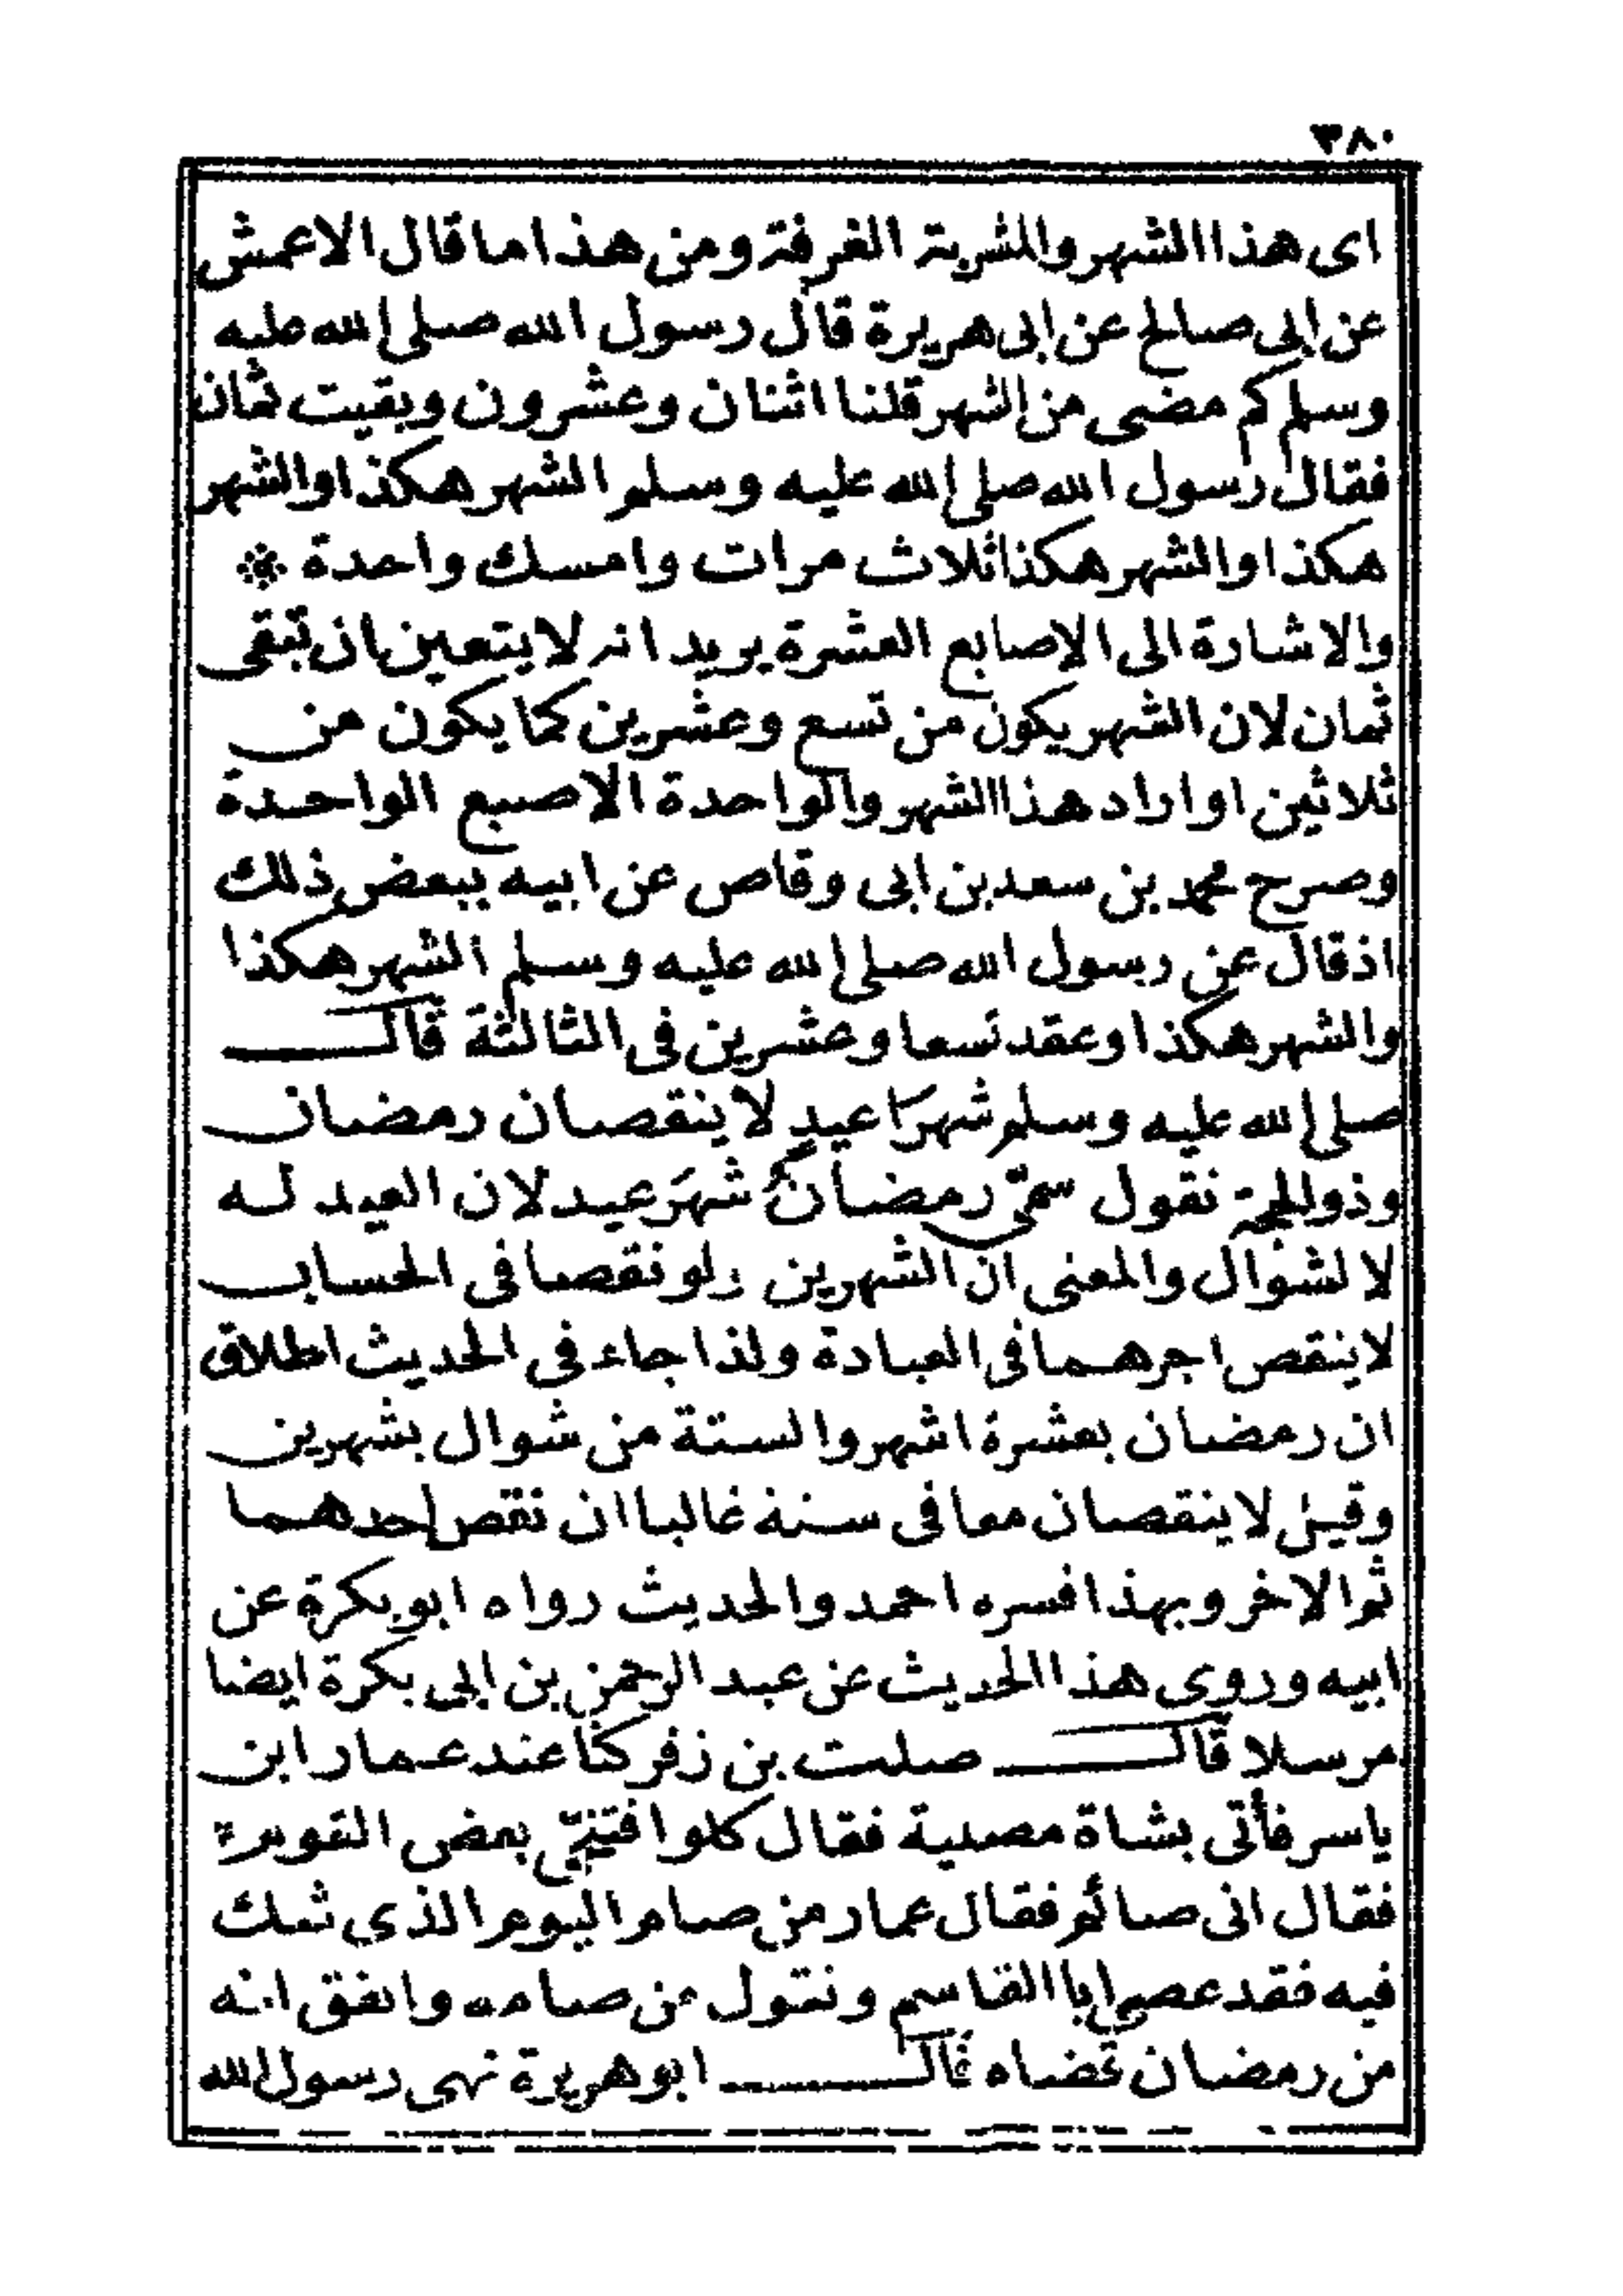 ٣٨٠
اى هذا الشهر والمشربة الغرفة ومن هذا ما قال الاعمش
عن ابى صالح عن ابى هريرة قال رسول الله صلى الله عليه
وسلم كم مضى من الشهر قلنا اثنان وعشرون وبقيت ثمان
فقال رسول الله صلى الله عليه وسلم الشهر هكذا والشهر
هكذا والشهر هكذا ثلاث مرات وامسك واحدة
والاشارة الى الاصابع العشرة يريد انه لا يتعين ان تبقى
ثمان لان الشهر يكون من تسع وعشرين كما يكون من
ثلاثين او اراد هذا الشهر والواحدة الاصبع الواحدة
وصرح محمد بن سعد بن ابى وقاص عن ابيه ببعض ذلك
اذ قال عن رسول الله صلى الله عليه وسلم الشهر هكذا
والشهر هكذا وعقد تسعا وعشرين فى الثالثة قال
صلى الله عليه وسلم شهرَا عيدٍ لا ينقصان رمضان
وذو الحجة نقول سمّى رمضانُ شهرَ عيد لان العيد له
لا لشوال والمعنى ان الشهرين ولو نقصا فى الحساب
لا ينقص اجرهما فى العبادة ولذا جاء فى الحديث اطلاق
ان رمضان بعشرة اشهر والستة من شوال بشهرين
وقيل لا ينقصان معا فى سنة غالبا ان نقص احدهما
ثم الاخر وبهذا فسره احمد والحديث رواه ابو بكرة عن
ابيه وروى هذا الحديث عن عبد الرحمن بن ابى بكرة ايضا
مرسلا قال صلت بن زفر كنّا عند عمار ابن
ياسر فأتى بشاة مصلية فقال كلوا فتنحّى بعض القوم
فقال انى صائم فقال عمار من صام اليوم الذى شك
فيه فقد عصى ابا القاسم ونقول من صامه واتفق انه
من رمضان قضاه قال ابو هريرة نهى رسول الله